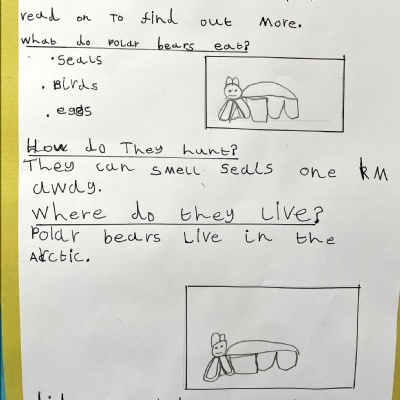 read on to find out more.
what do polar bears eat?
• seals
• Birds
• eggs
How do They hunt?
They can smell seals one km
away.
where do they Live?
Polar bears Live in the
Arctic.